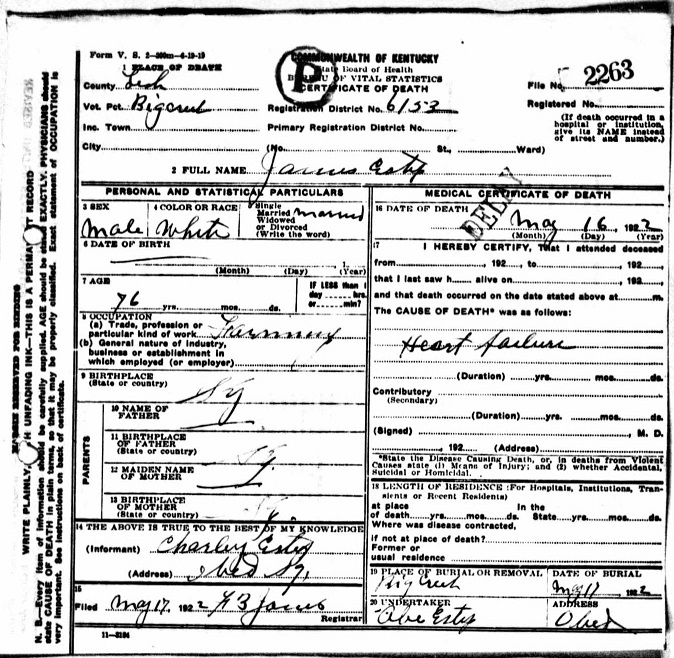 Form V. S. 2-200m-6-19-19
COMMONWEALTH OF KENTUCKY
State Board of Health
BUREAU OF VITAL STATISTICS
CERTIFICATE OF DEATH
P
1 PLACE OF DEATH
County
Vot. Pct.
Inc. Town
City
File No. 2263
Registration District No. 6153
Registered No.
Primary Registration District No.
(If death occurred in a hospital or institution, give its NAME instead of street and number.)
(No. St., Ward)
2 FULL NAME James Estep
PERSONAL AND STATISTICAL PARTICULARS
3 SEX
Male
4 COLOR OR RACE
White
5 Single
Married
Widowed
or Divorced
(Write the word)
married
6 DATE OF BIRTH
(Month) (Day) (Year)
7 AGE
76 yrs. mos. ds.
IF LESS than 1
day hrs.
or min.?
8 OCCUPATION
(a) Trade, profession or
particular kind of work Farming
(b) General nature of industry,
business or establishment in
which employed (or employer)
9 BIRTHPLACE
(State or country)
Ky
PARENTS
10 NAME OF
FATHER
11 BIRTHPLACE
OF FATHER
(State or country)
Ky
12 MAIDEN NAME
OF MOTHER
13 BIRTHPLACE
OF MOTHER
(State or country)
14 THE ABOVE IS TRUE TO THE BEST OF MY KNOWLEDGE
(Informant) Charley Estep
(Address) Obed Ky.
15
Filed May 17, 1922
Registrar
11-3184
MEDICAL CERTIFICATE OF DEATH
16 DATE OF DEATH
May 16 1922
(Month) (Day) (Year)
17 I HEREBY CERTIFY, That I attended deceased
from 192 , to 192
that I last saw h alive on , 192
and that death occurred on the date stated above at m.
The CAUSE OF DEATH* was as follows:
Heart failure
(Duration) yrs. mos. ds.
Contributory
(Secondary)
(Duration) yrs. mos. ds.
(Signed) , M. D.
, 192 (Address)
*State the Disease Causing Death, or, in deaths from Violent
Causes state (1) Means of Injury; and (2) whether Accidental,
Suicidal or Homicidal.
18 LENGTH OF RESIDENCE (For Hospitals, Institutions, Transients or Recent Residents)
at place
of death yrs. mos. ds.
In the
State yrs. mos. ds.
Where was disease contracted,
if not at place of death?
Former or
usual residence
19 PLACE OF BURIAL OR REMOVAL
Big Creek
DATE OF BURIAL
May 17 1922
20 UNDERTAKER
Abe Estep
ADDRESS
Obed
WRITE PLAINLY, WITH UNFADING INK—THIS IS A PERMANENT RECORD
N. B.—Every item of information should be carefully supplied. AGE should be stated EXACTLY. PHYSICIANS should
state CAUSE OF DEATH in plain terms, so that it may be properly classified. Exact statement of OCCUPATION is
very important. See instructions on back of certificate.